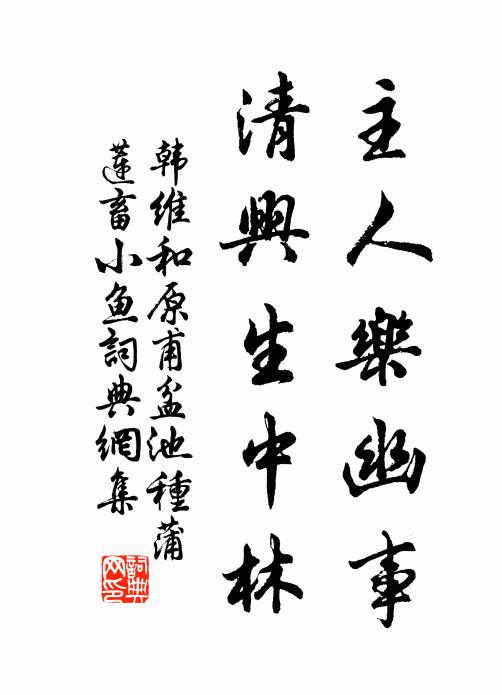 主人樂幽事
清興生中林
韩维和原甫盆池種蒲
蓮畜小魚詞典網集
詞典
网印